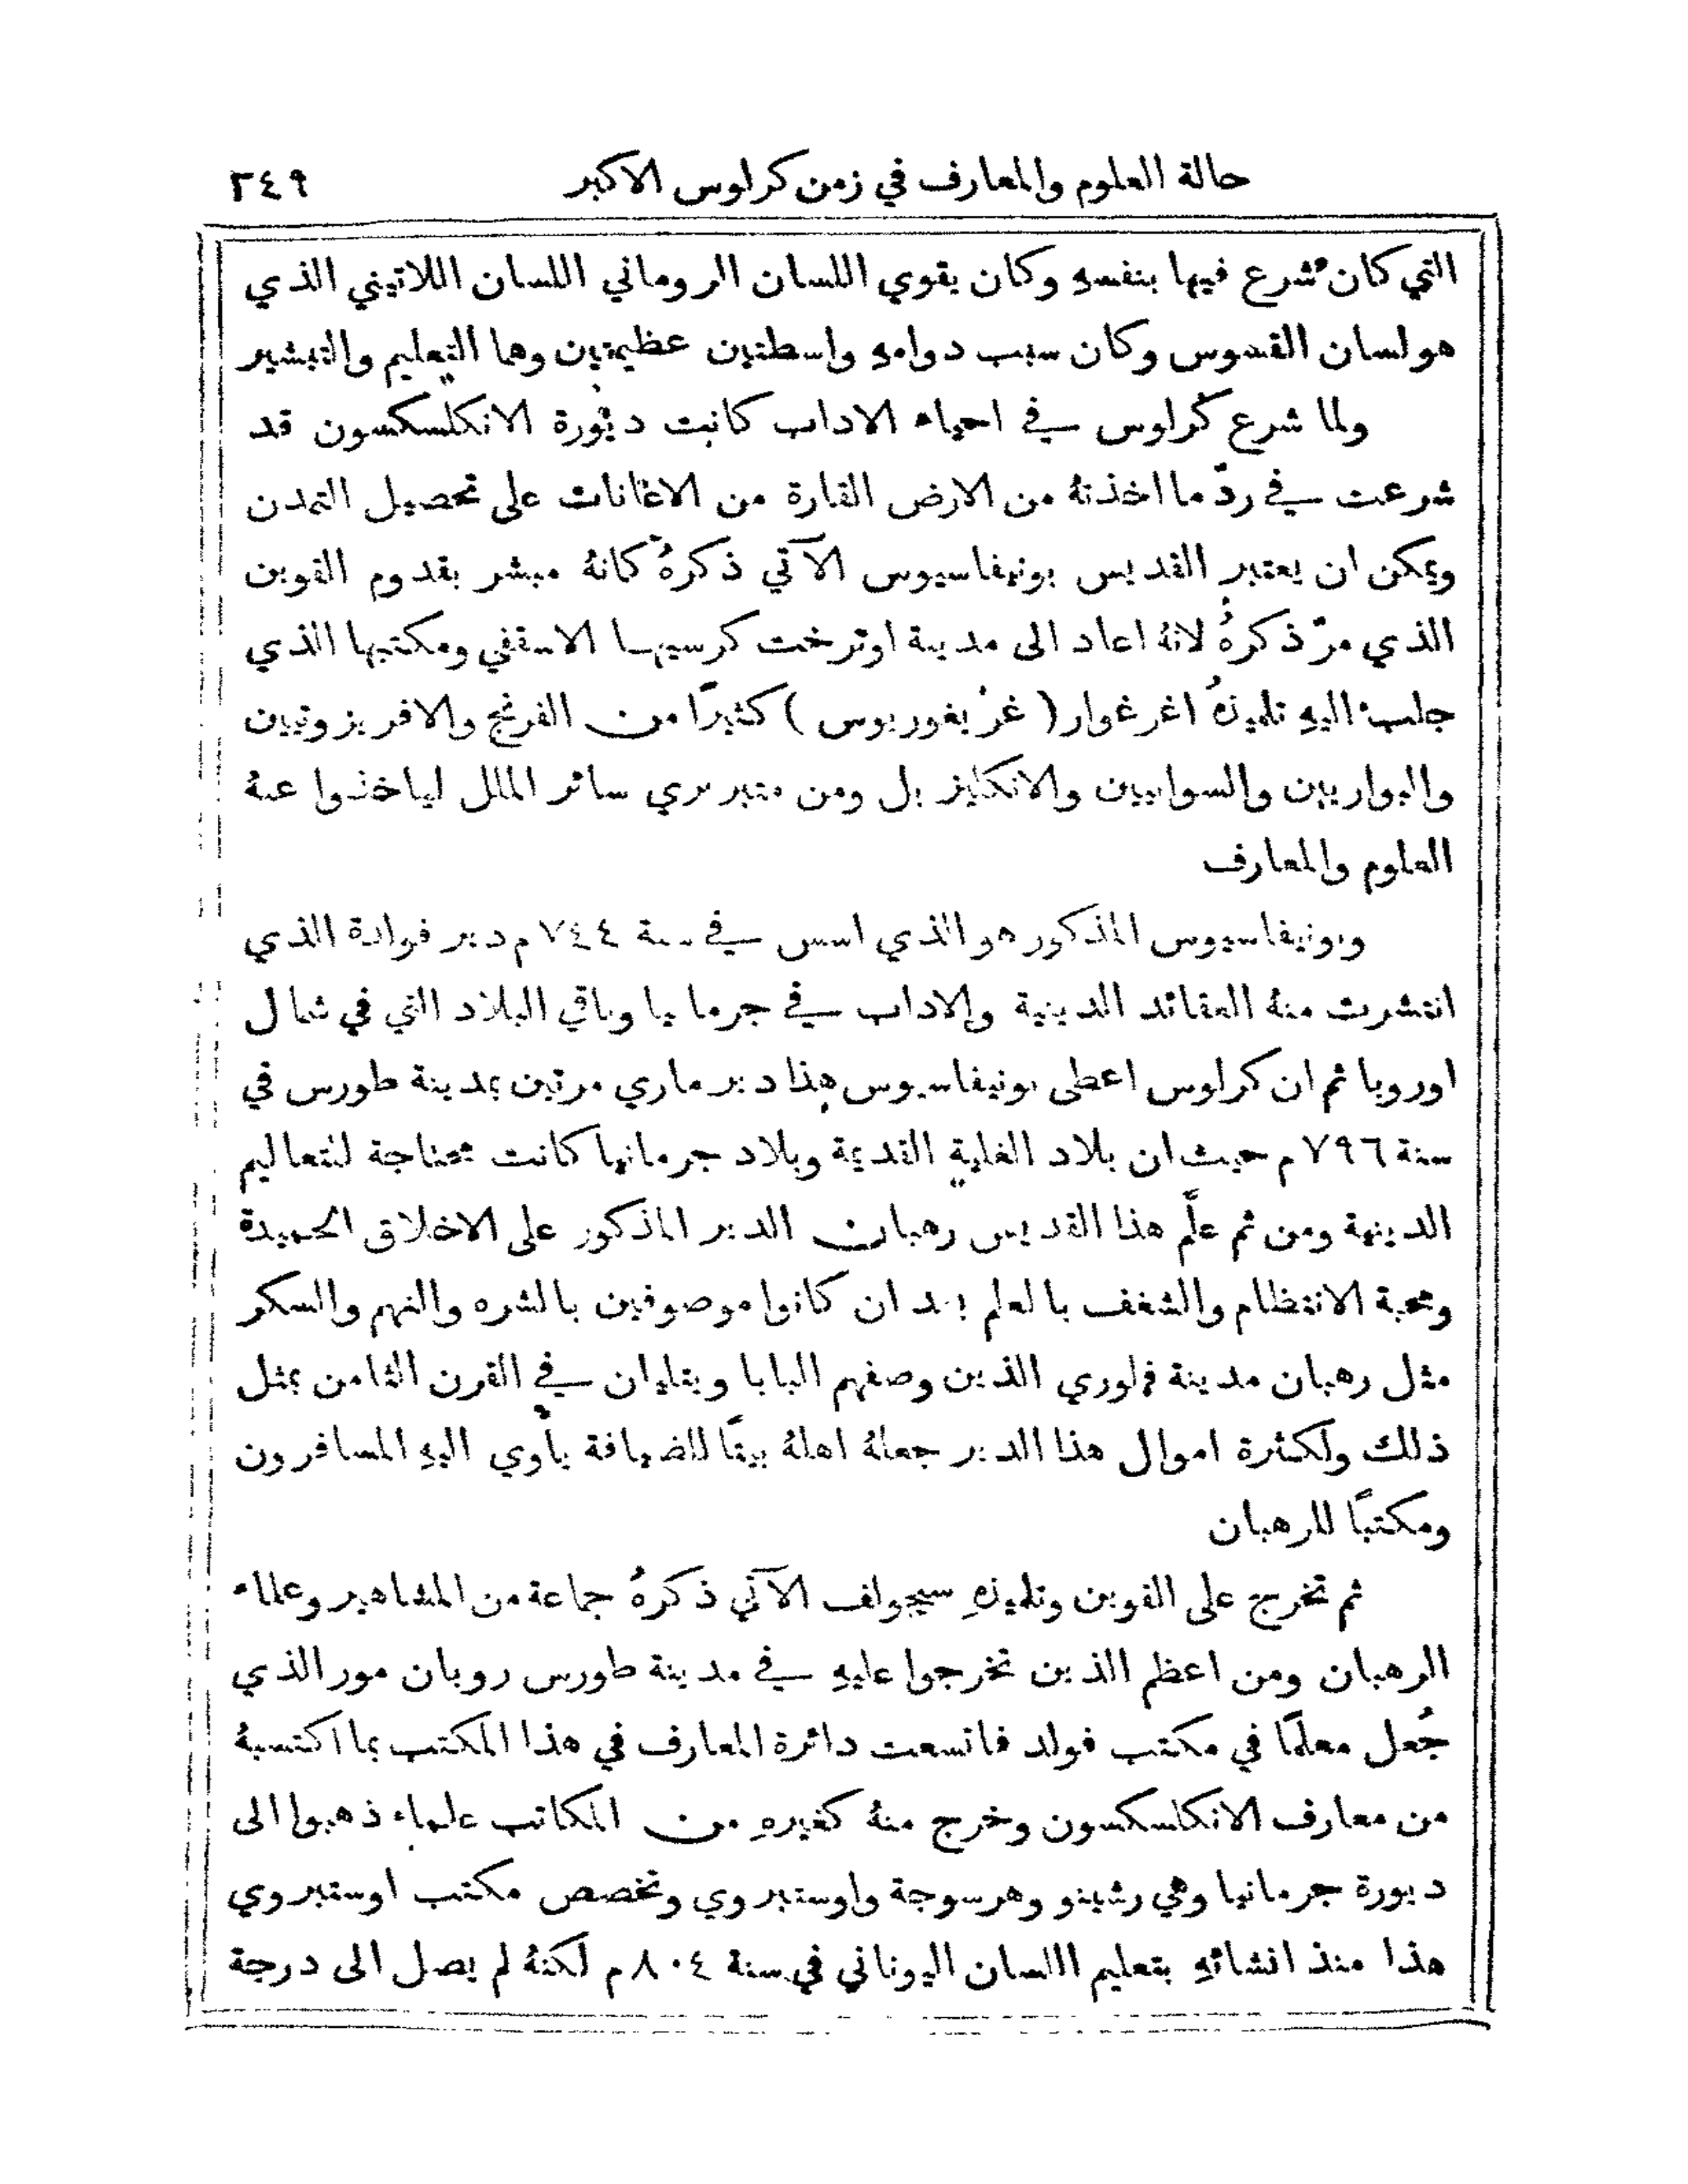 حالة العلوم والمعارف في زمن كرلوس الاكبر ٢٤٩
التي كان شرع فيها بنفسهِ وكان يقوي اللسان الروماني اللسان اللاتيني الذي
هو لسان القسوس وكان سبب دوامهِ واسطتين عظيمتين وهما التعليم والتبشير
ولما شرع كرلوس في احياء الاداب كانت ديورة الانكلسكسون قد
شرعت في ردّ ما اخذتهُ من الارض القارة من الاعانات على تحصيل التمدن
ويمكن ان يعتبر القديس بونيفاسيوس الآتي ذكرهُ كانهُ مبشر بقدوم القوين
الذي مرّ ذكرهُ لانهُ اعاد الى مدينة اوترخت كرسيها الاسقفي ومكتبها الذي
جلب اليهِ تلميذهُ اغرغوار (غريغوريوس) كثيرًا من الفرنج والافريزوتيين
والبواريين والسوابيين والانكليز بل ومن متبربري سائر الملل لياخذوا عنهُ
العلوم والمعارف
وبونيفاسيوس المذكور هو الذي اسس في سنة ٧٤٤ م دير فولدة الذي
انتشرت منهُ العقائد الدينية والاداب في جرمانيا وباقي البلاد التي في شمال
اوروبا ثم ان كرلوس اعطى بونيفاسيوس هذا دير ماري مرتين بمدينة طورس في
سنة ٧٩٦ م حيث ان بلاد الغلية القديمة وبلاد جرمانيا كانت محتاجة لتعاليم
الدينية ومن ثم علَّم هذا القديس رهبان الدير المذكور على الاخلاق الحميدة
ومحبة الانتظام والشغف بالعلم بعد ان كانوا موصوفين بالشره والنهم والسكر
مثل رهبان مدينة فلوري الذين وصفهم البابا ويتليان في القرن الثامن بمثل
ذلك ولكثرة اموال هذا الدير جعلهُ اهلهُ بيتًا للضيافة يأوي اليهِ المسافرون
ومكتبًا للرهبان
ثم تخرج على القوين وتلميذهِ سيجولف الآتي ذكرهُ جماعة من المشاهير وعلماء
الرهبان ومن اعظم الذين تخرجوا عليهِ في مدينة طورس روبان مور الذي
جُعل معلمًا في مكتب فولد فاتسعت دائرة المعارف في هذا المكتب بما اكتسبهُ
من معارف الانكلسكسون وخرج منهُ كغيرهِ من المكاتب علماء ذهبوا الى
ديورة جرمانيا وهي رشينو وهرسوجة واوستبروي وتخصص مكتب اوستبروي
هذا منذ انشائهِ بتعليم اللسان اليوناني في سنة ٨٠٤ م لكنهُ لم يصل الى درجة